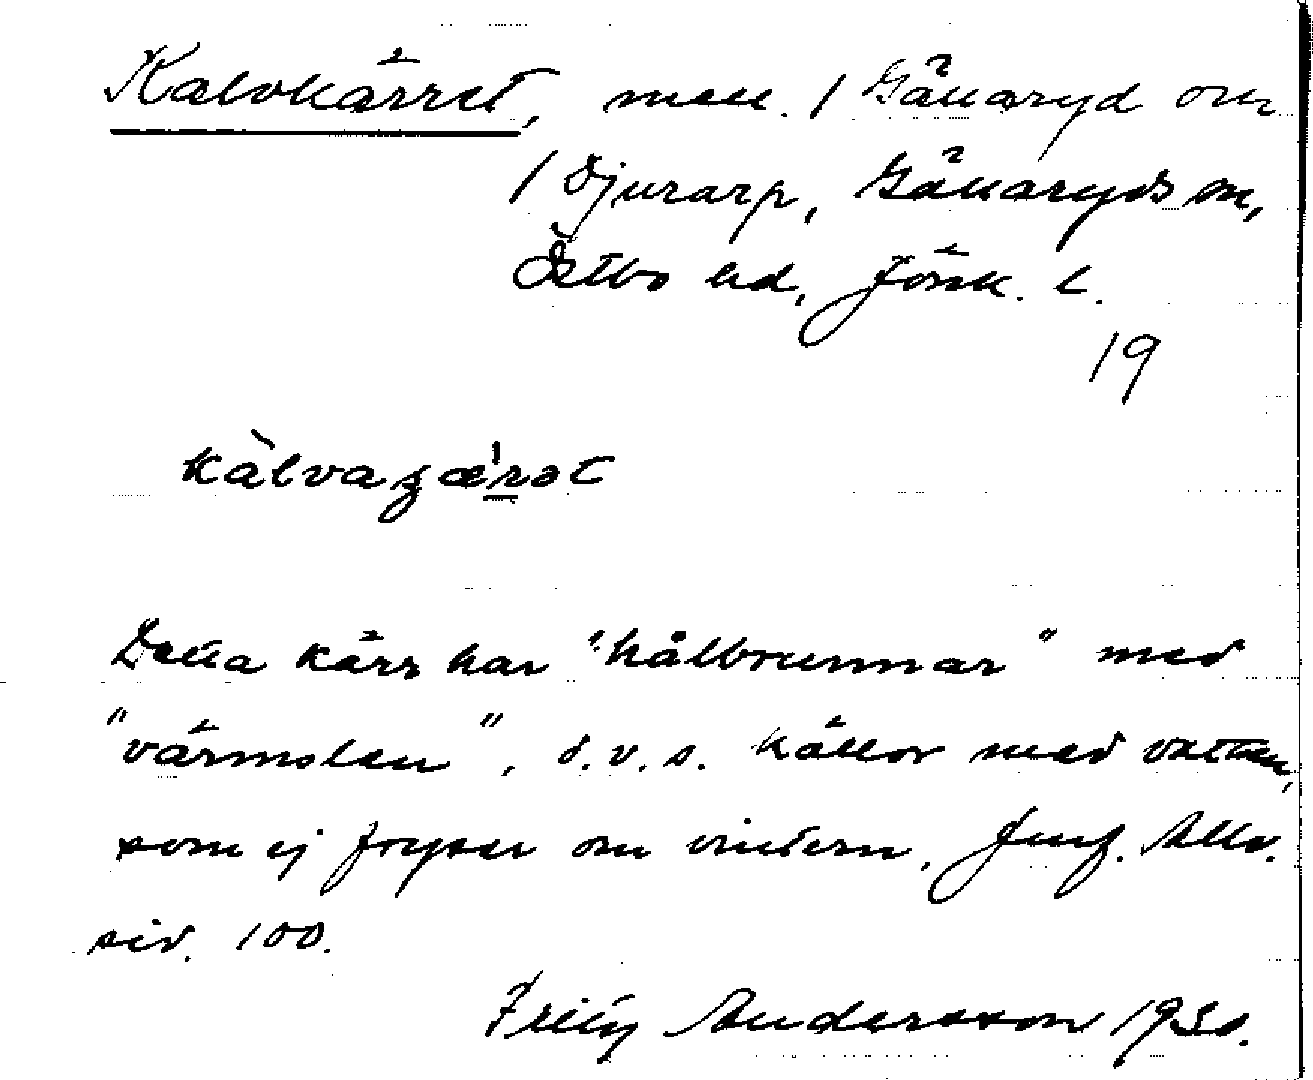 Kalvkärret, mell. 1 Gällaryd om
1 Djurarp, Gällaryds sn,
Östbo hd, Jönk. l.
19
kàlvaʒæ̀rət
Detta kärr har "hålbrunnar" med
"värmslen", d.v.s. källor med vatten,
som ej fryser om vintern. Jmf. Allo.
sid. 100.
Andersson 1930.